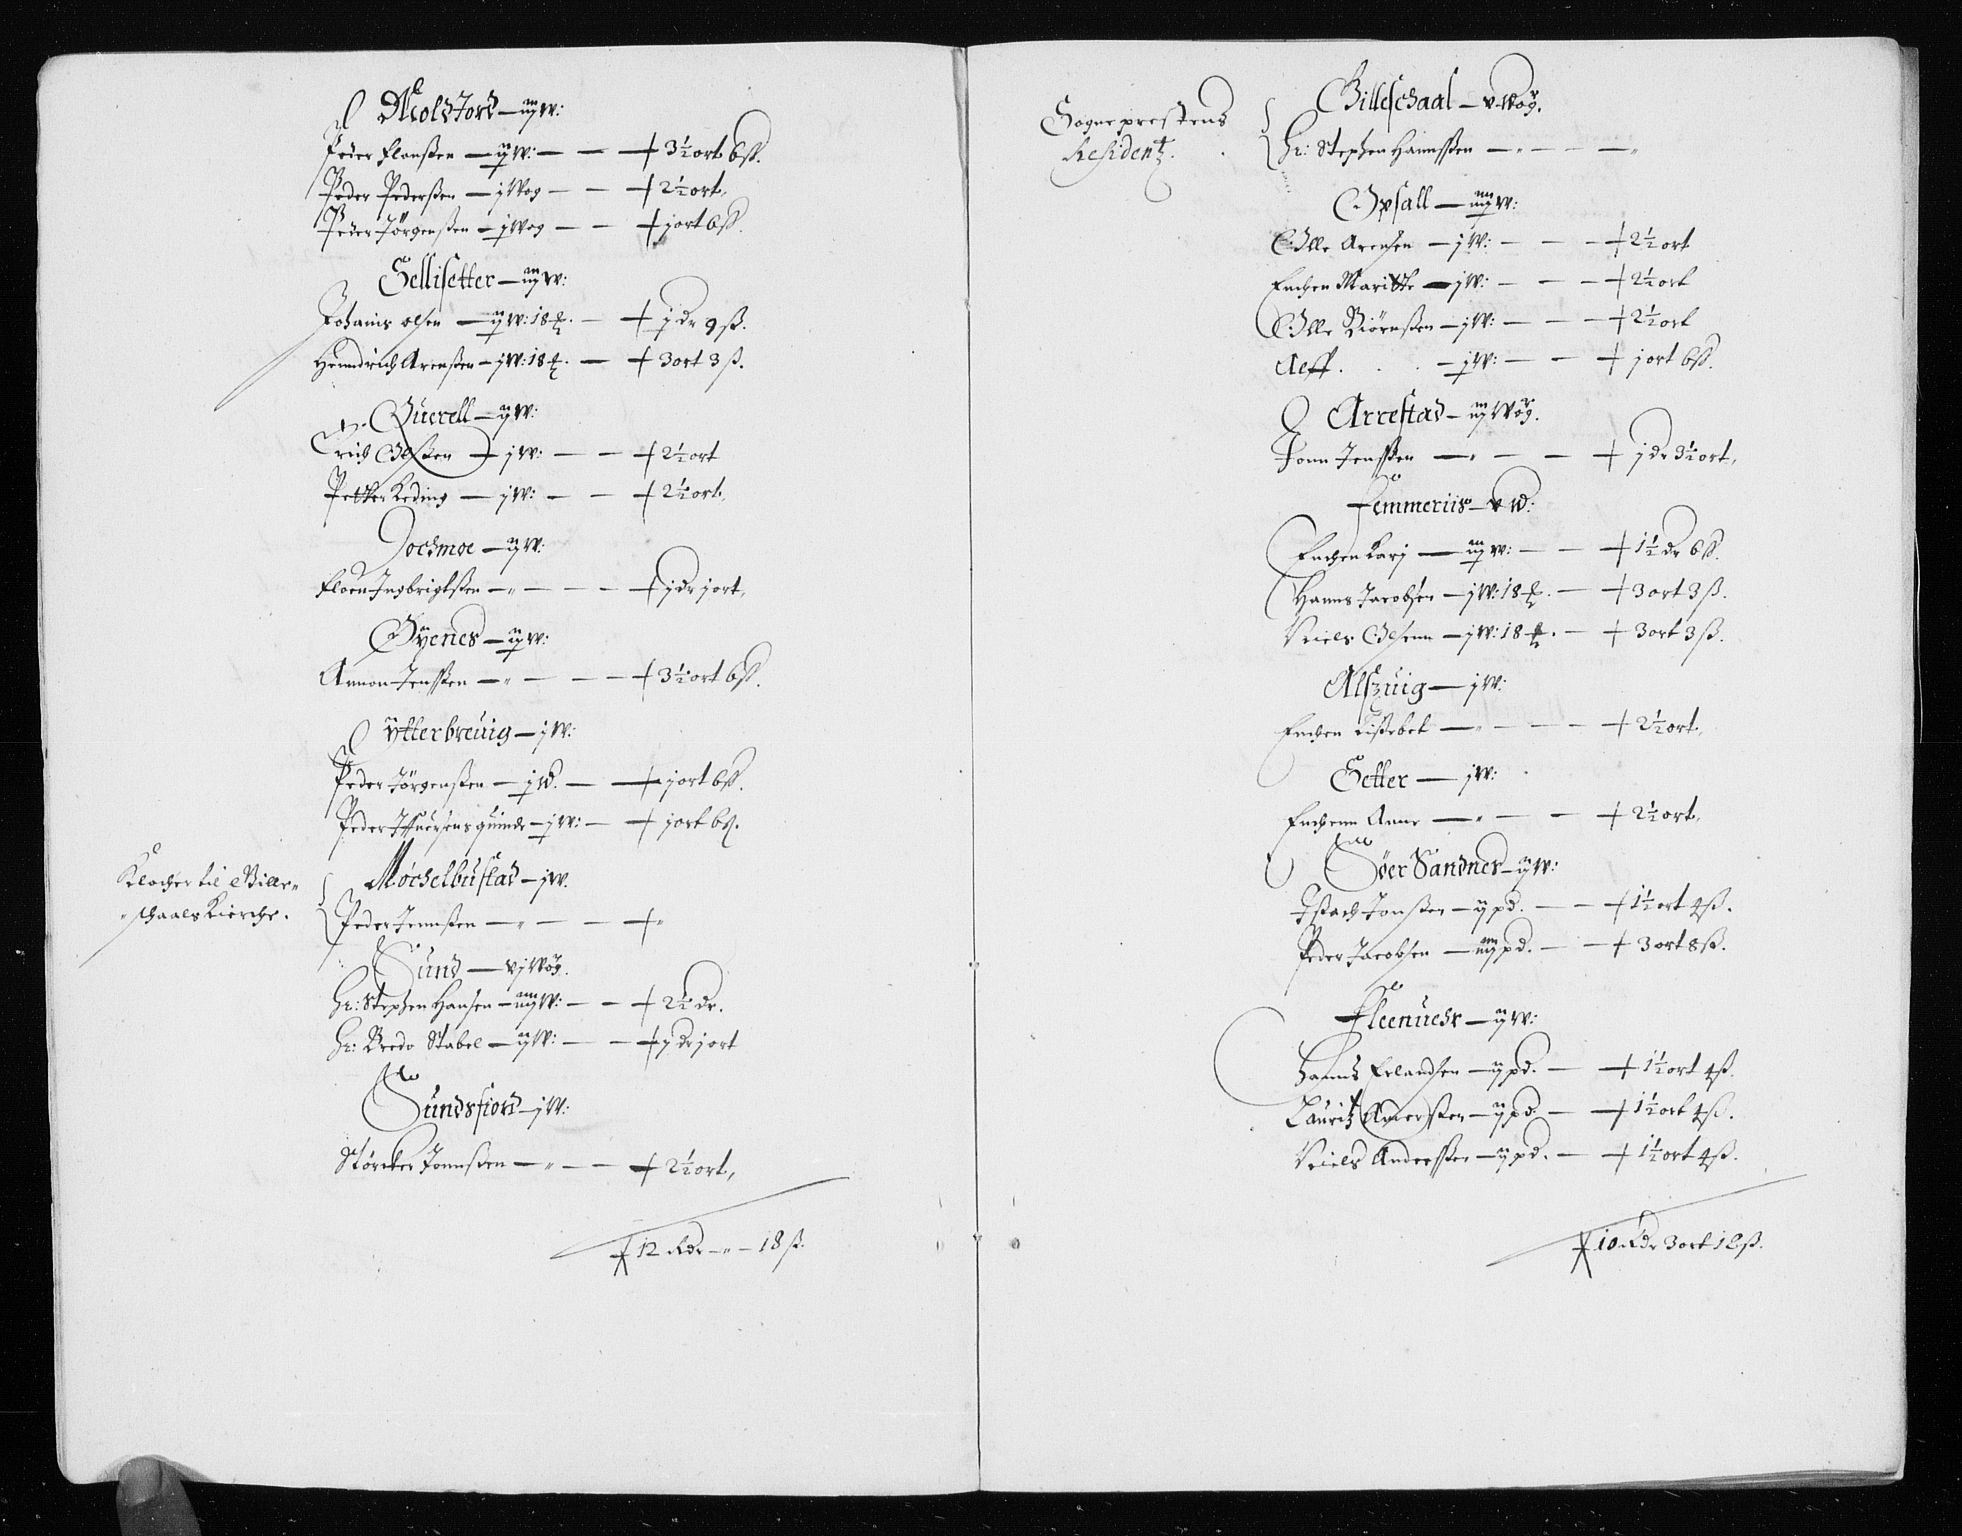 Moldjord — iij W:
Peder Elanßen — ij W: — — 3½ ort 6 ß.
Peder Pederßen — j Wog — — 2½ ort,
Peder Jörgenßen — j Wog — — j ort 6 ß.
Sellisetter — iij W:
Johanis olsen — ij W: 18 — j dr 9 ß.
Henndrich Arenßen — j W: 18 — 3 ort 3 ß.
Querell — ij W:
Erich Olßen — j W: — — 2½ ort
Petter Keding — j W: — — 2½ ort,
Dochmoe — ij W:
Eloen Ingbrigtßen — " — — — j dr j ort,
Øyenes — ij W:
Amon Jenßen — " — — — 3½ ort 6 ß.
Ytterbreuig — j W:
Peder Jörgenßen — j W. — j ort 6 ß.
Peder Iffuersens quinde — j W: — j ort 6 ß.
Klocher til Bille-
schaals Kierche.
Mochelbustad — j W.
Peder Jennßen — " — — — "
Sund — vj Wog.
Hr: Stephen Hansen — iiij W: — — 2½ dr.
Hr: Bredo Stabel — ij W: — — j dr j ort
Sundsfiord — j W:
Störcker Jonnßen — " — — 2½ ort,
12 Rdr — " — 18 ß.
Sogneprestens
Residentz.
Billeschaal — v Wog.
Hr: Stephen Hannßen — " — — "
Opsall — iiij W:
Olle Arensen — j W: — — 2½ ort
Enchen Maritte — j W: — — 2½ ort
Olle Biörnßen — j W: — — 2½ ort
Aeff. . . — j W: — — j ort 6 ß.
Arrestad — iij Wog.
Jonn Jenßen — " — — j dr 3½ ort,
Femmeriis — v W:
Enchen Karj — iij W: — — 1½ dr 6 ß.
Hanns Jacobsen — j W: 18 — 3 ort 3 ß.
Niels Olsenn — j W: 18 — 3 ort 3 ß.
Alszuig — j W:
Enchen Lißebet — " — — — 2½ ort,
Setter — j W:
Enchenn Anne — " — — 2½ ort,
Søer Sandnes — ij W:
Ißach Jonßen — ij pd. — — 1½ ort 4 ß.
Peder Jacobsen — iiij pd. — — 3 ort 8 ß.
Fleenuehr — ij W:
Hanns Erlandsen — ij pd. — 1½ ort 4 ß.
Lauritz Anderßen — ij pd — 1½ ort 4 ß.
Niels Anderßen — ij pd. — 1½ ort 4 ß.
10 Rdr 3 ort 12 ß.